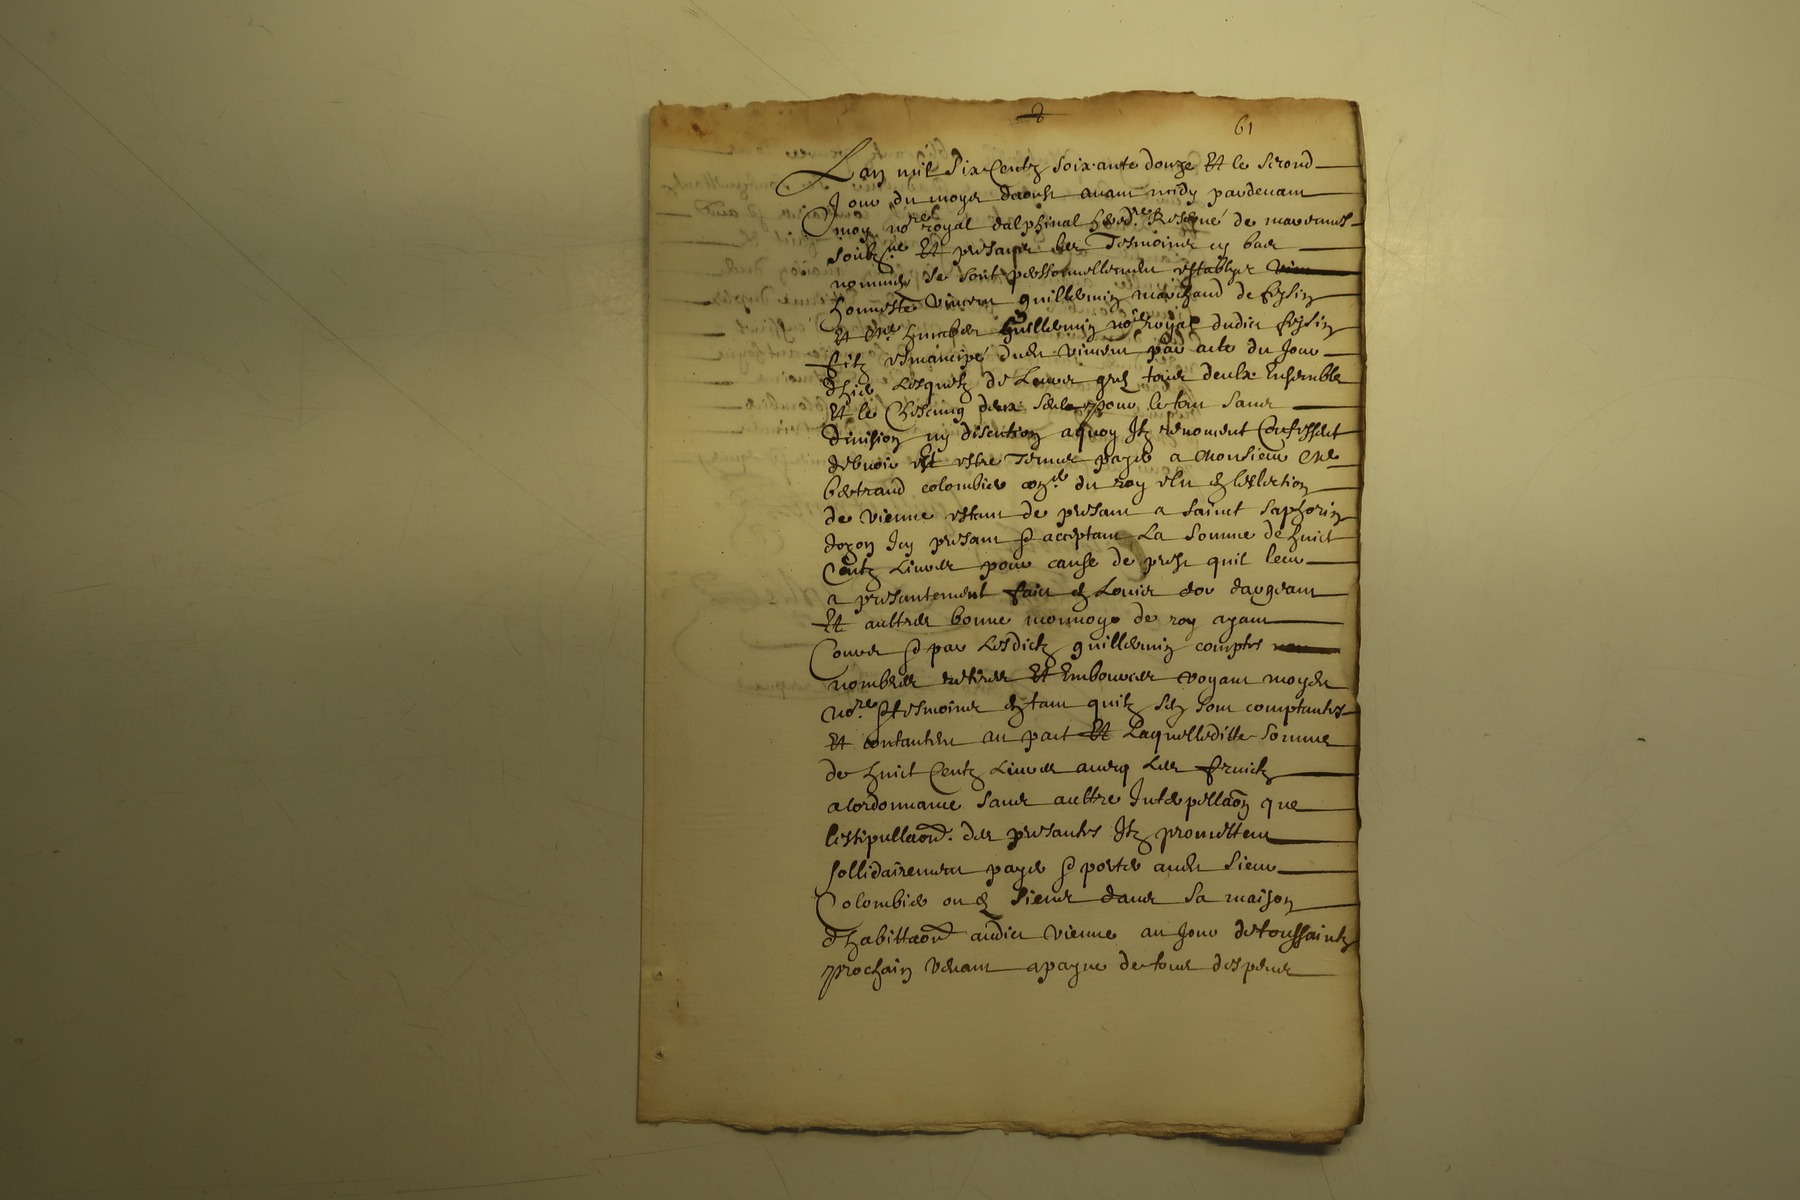 61
Lan mil Six Centz soixante douze Et le second
Jour du moys daoust avant midy pardevant
moy no.re royal dalphinal hered.re Reservé de marennes
soubz.ne Et presans les Tesmoins cy bas
nommes se sont personnellement establys
honneste Vincent guillermin marchand de feysin
Et m.e humbert guillermin no.re royal dudict feysin
filz esmancipé dudit vincent par acte du Jour
dhier Lesquelz de Leurs grez tous deulx Ensemble
Et le Chescung deux seul pour le tout sans
division ny discution a quoy Ilz renoncent Confessent
debvoir Et estre Tenus payer a Monsieur Me
bertrand colombier con.er du roy esleu en leslection
de vienne estant de presant a sainct saphorin
dozon Icy presant & acceptant La somme de huict
Centz Livres pour cause de prest quil leur
a presantement faict en Louis dor dargeant
Et aultres bonne monnoye de roy ayant
Cours & par Lesdictz guillermin comptes
nombres retires Et Embources voyant moydit
No.re & tesmoins en tant quilz sen sont comptantes
Et contantent au pact Et Laquelleditte somme
de huict Centz Livres avecq Les fruictz
a lordonnance sans aultre Interpellaon que
lestipullaon des presantes Ilz promettent
sollidairement payer & porter audit sieur
Colombier ou es siens dans sa maison
dhabittaon audict vienne au Jour de toussainctz
prochain venant a payne de tous despens